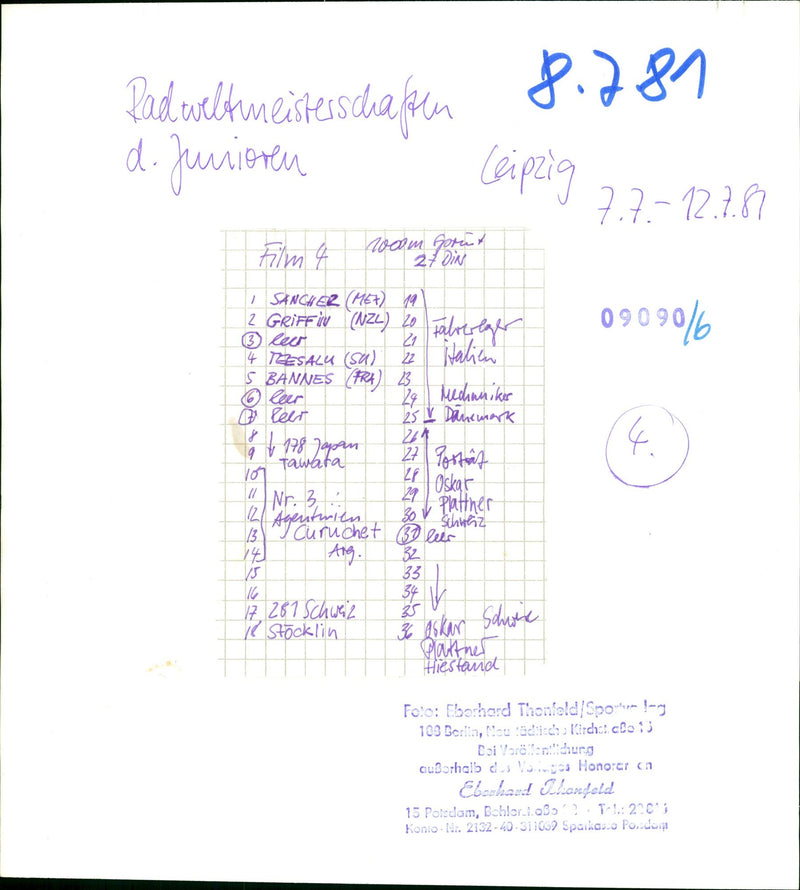 8.7 81
Radweltmeisterschaften
d. Junioren
Leipzig
7.7.- 12.7.81
Film 4
1000m Sprint
27 DIN
1 SANCHEZ (MEX)
2 GRIFFIN (NZL)
3 leer
4 TEESALU (SU)
5 BANNES (FRA)
6 leer
7 leer
8
9 178 Japan
Tawara
10
11 Nr. 3
12 Agentinien
13 Curuchet
14 Arg.
15
16
17 281 Schweiz
18 Stöcklin
19
20 Fahrerlager
21
22 Italien
23
24 Mechaniker
25 Dänemark
26
27 Porträt
28 Oskar
29 Plattner
30 Schweiz
31 leer
32
33
34
35 Schweiz
36 Oskar
Plattner
Hiestand
09090/6
4.
Foto: Eberhard Thonfeld/Sportverlag
108 Berlin, Neustädtische Kirchstraße 15
Bei Veröffentlichung
außerhalb des Verlages Honorar an
Eberhard Thonfeld
15 Potsdam, Tel.:
Konto-Nr. 2132-40-311039 Sparkasse Potsdam